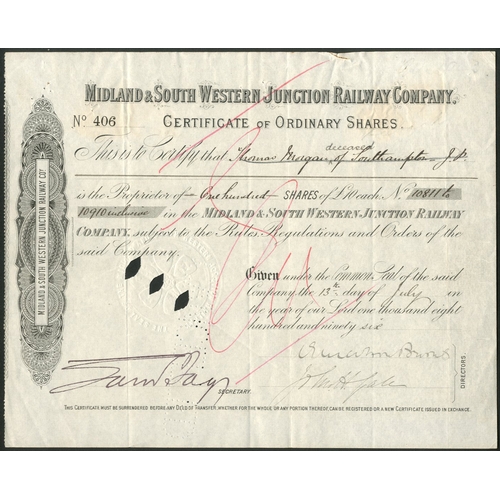 MIDLAND & SOUTH WESTERN JUNCTION RAILWAY COMPANY.
No 406
CERTIFICATE OF ORDINARY SHARES.
deceased
This is to Certify that Thomas Morgan, of Southampton J.P.
is the Proprietor of One hundred SHARES of £10 each No 10811 to
10910 inclusive in the MIDLAND & SOUTH WESTERN JUNCTION RAILWAY
COMPANY, subject to the Rules Regulations and Orders of the
said Company.
Given under the Common Seal of the said
Company, the 13th day of July in
the year of our Lord one thousand eight
hundred and ninety six
DIRECTORS.
SECRETARY.
THIS CERTIFICATE MUST BE SURRENDERED BEFORE ANY DEED OF TRANSFER, WHETHER FOR THE WHOLE OR ANY PORTION THEREOF, CAN BE REGISTERED OR A NEW CERTIFICATE ISSUED IN EXCHANGE.
MIDLAND & SOUTH WESTERN JUNCTION RAILWAY CO.